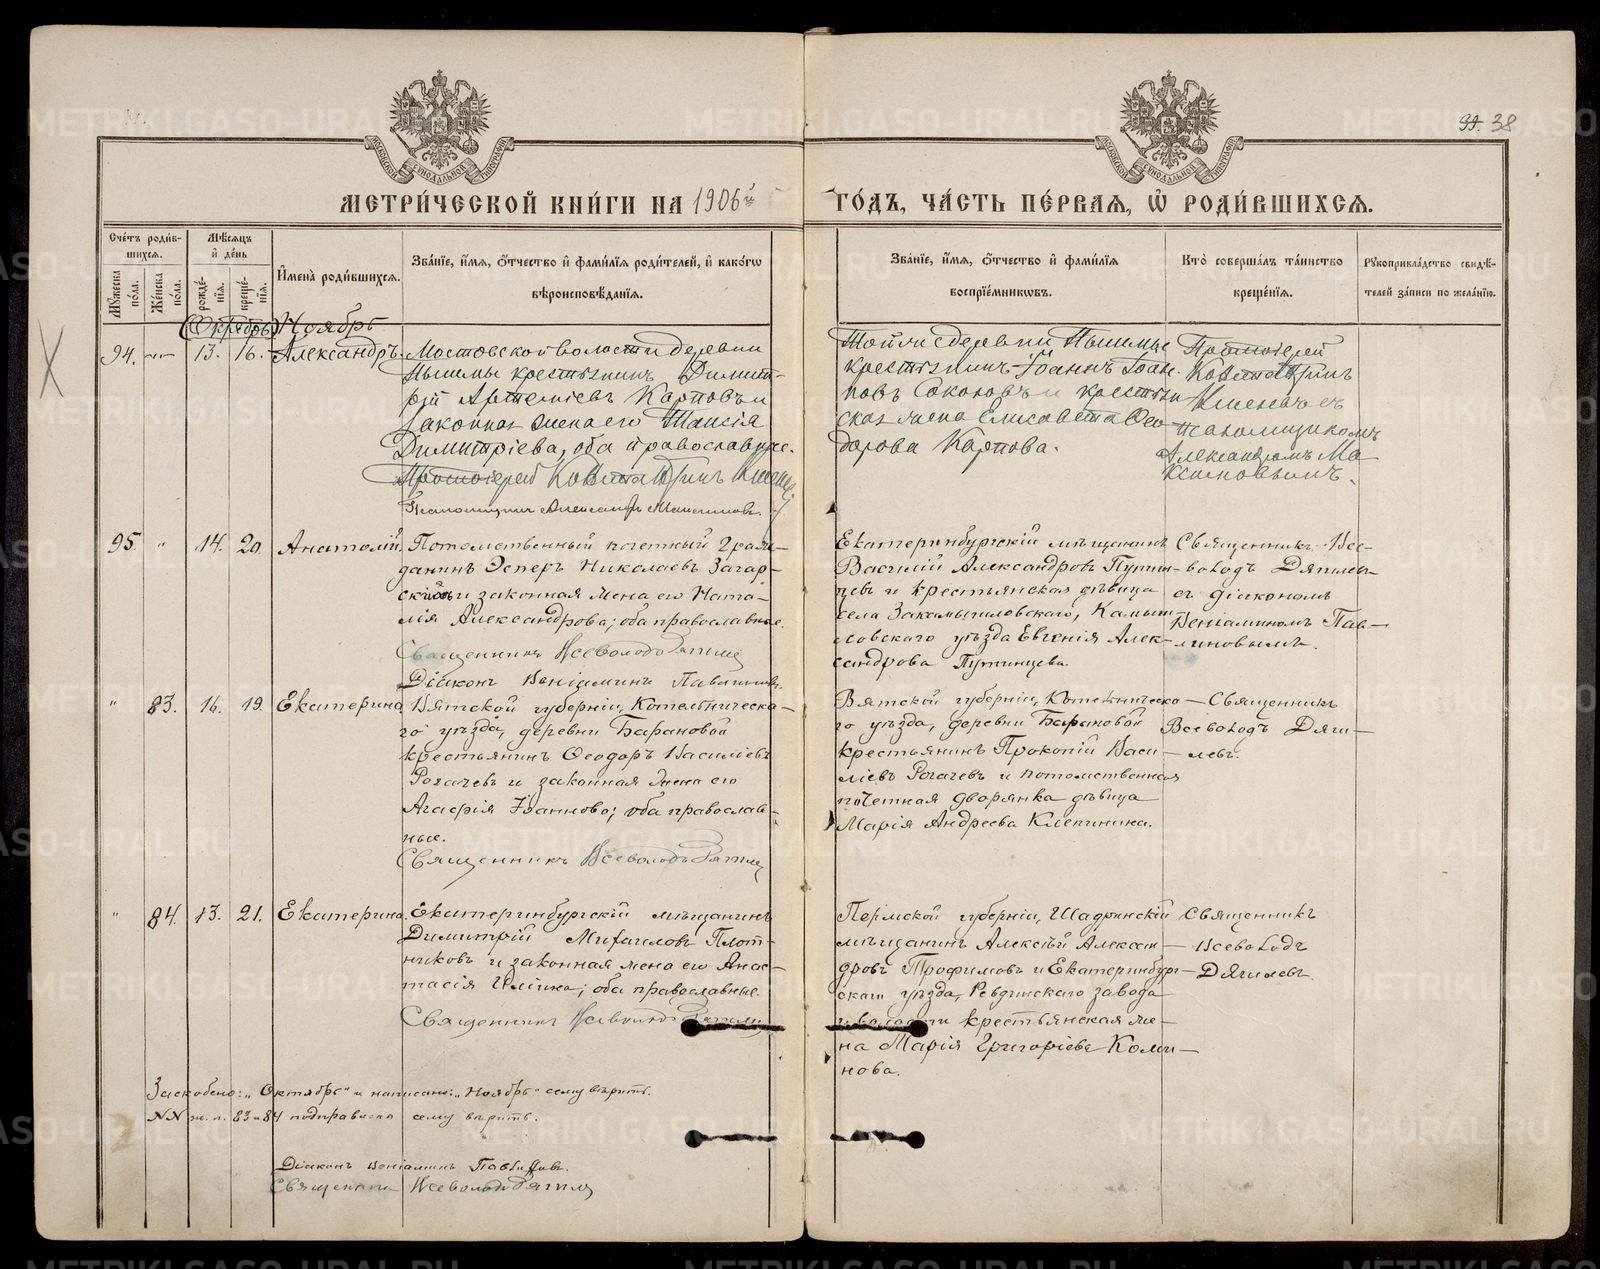 99. 38
МОСКОВСКОЙ СУНОДАЛЬНОЙ ТИПОГРАФIИ
МОСКОВСКОЙ СУНОДАЛЬНОЙ ТИПОГРАФIИ
МЕТРИ́ЧЕСКОЙ КНИ́ГИ НА 1906й
ГО́ДЪ, ЧА́СТЬ ПЕ́РВАЯ, Ѡ҆ РОДИ́ВШИХСЯ.
Сче́тъ роди́в-
шихся.
Му́жеска по́ла.
Же́нска по́ла.
Мѣ́сяцъ
и҆ де́нь
рожде́-
нїя.
креще́-
нїя.
И҆мена̀ роди́вшихся.
Зва́нїе, и҆́мя, ѻ҆́тчество и҆ фами́лїя роди́телей, и҆ како́гѡ
вѣроисповѣ́данїя.
Зва́нїе, и҆́мя, ѻ҆́тчество и҆ фами́лїя
воспрїе́мникѡвъ.
Кто̀ соверша́лъ та́инство
креще́нїя.
Рꙋкоприкла́дство свидѣ́-
телей за́писи по жела́нїю.
(Октябрь) Ноябрь
94. — 13. 16. Александръ.
Мостовской волости деревни
Пышмы крестьянинъ Димит-
рій Артеміевъ Карповъ и
законная жена его Таисія
Димитріева, оба православные.
Протоіерей
Псаломщикъ Александръ Максимовъ.
Той же деревни Пышмы
крестьянинъ Іоаннъ Іоан-
новъ Соколовъ и крестьян-
ская жена Елисавета Ѳео-
дорова Карпова.
Протоіерей
съ
псаломщикомъ
Александромъ Ма-
ксимовымъ.
95. " 14. 20. Анатолій.
Потомственный почетный граж-
данинъ Эсперъ Николаевъ Загар-
скій и законная жена его Ната-
лія Александрова; оба православные.
Священникъ Всеволодъ Дягилевъ
Діаконъ Веніаминъ Павлиновъ.
Екатеринбургскій мѣщанинъ
Василій Александровъ Путин-
цевъ и крестьянская дѣвица
села Закамышловскаго, Камыш-
ловскаго уѣзда Евгенія Алек-
сандрова Путинцева.
Священникъ Все-
володъ Дягилевъ
съ діакономъ
Веніаминомъ Пав-
линовымъ.
" 83. 16. 19. Екатерина
Вятской губерніи, Котельническа-
го уѣзда, деревни Барановой
крестьянинъ Ѳеодоръ Васильевъ
Рогачевъ и законная жена его
Агафія Іоаннова; оба православ-
ные.
Священникъ Всеволодъ Дягилевъ
Вятской губерніи, Котельническа-
го уѣзда, деревни Барановой
крестьянинъ Прокопій Васи-
ліевъ Рогачевъ и потомственная
почетная дворянка дѣвица
Марія Андреева Клепинина.
Священникъ
Всеволодъ Дяги-
левъ.
" 84. 13. 21. Екатерина.
Екатеринбургскій мѣщанинъ
Димитрій Михаиловъ Плот-
никовъ и законная жена его Анас-
тасія Ильина; оба православные.
Священникъ Всеволодъ Дягилевъ
Пермской губерніи, Шадринскій
мѣщанинъ Алексѣй Алексан-
дровъ Трофимовъ и Екатеринбург-
скаго уѣзда, Ревдинскаго завода
и волости крестьянская же-
на Марія Григоріева Колми-
нова.
Священникъ
Всеволодъ
Дягилевъ
Заскоблено: „Октябрь" и написано: „Ноябрь" сему вѣрить.
NN ж. п. 83 и 84 подправлено сему вѣрить.
Діаконъ Веніаминъ Павлиновъ.
Священникъ Всеволодъ Дягилевъ
METRIKI.GASO-URAL.RU